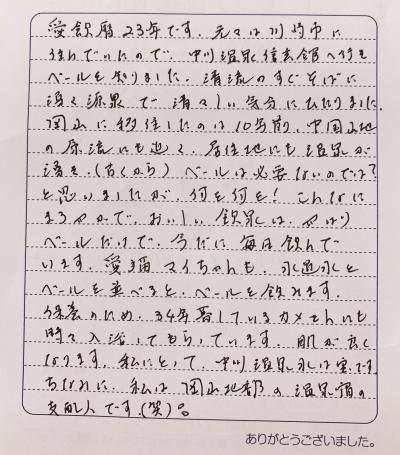 愛飲暦23年です。元々は川崎市に
住んでいたので、中川温泉信玄館へ行き
ベールを知りました。清流のすぐそばに
湧く源泉で清々しい気分にひたりました。
岡山に移住したのは10年前、中国山地
の原流にも近く、居住地にも温泉が
湧き、(古くから)ベールは必要ないのでは?
と思いましたが、何を何を!こんなに
まろやかで、おいしい飲泉は、やはり
ベールだけで、今だに毎日飲んで
います。愛猫マイちゃんも、水道水と
ベールを並べると、ベールを飲みます。
保養のため、34年暮しているカメさんにも
時々入浴してもらっています。肌が良く
なります。私にとって、中川温泉水は宝です。
ちなみに、私は岡山北部の温泉宿の
支配人です。(笑)。
ありがとうございました。